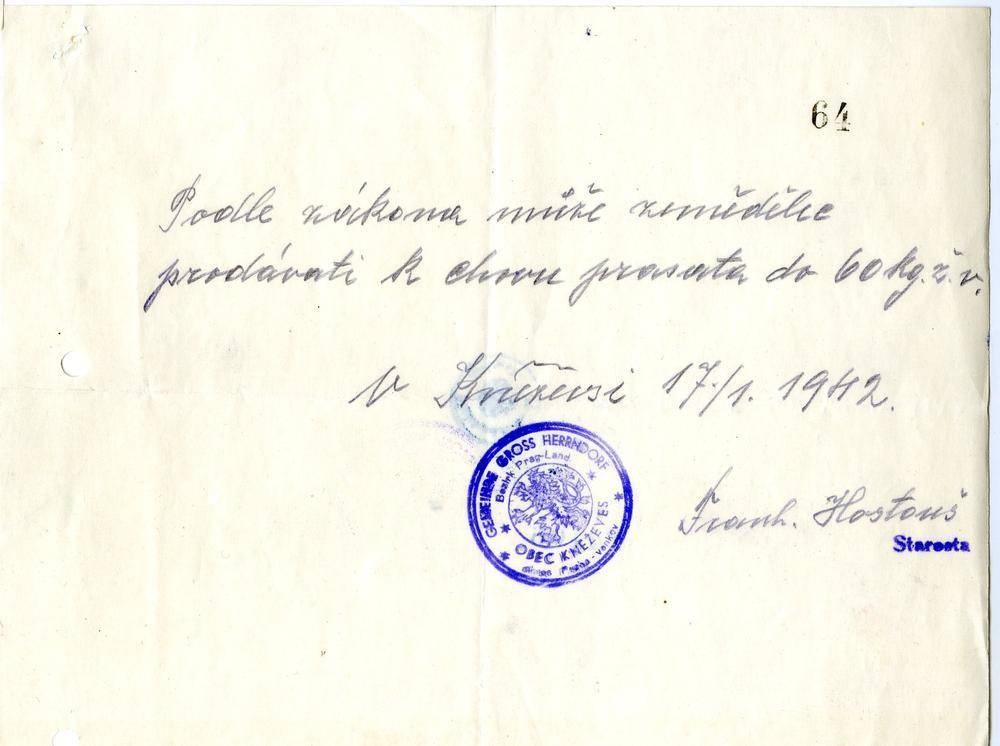 64
Podle zákona může zemědělec
prodávati k chovu prasata do 60 kg. ž. v.
V Kněževsi 17./1. 1942.
GEMEINDE GROSS HERRNDORF
Bezirk Prag-Land
OBEC KNĚŽEVES
okres Praha-venkov
Frant. Hostouš
Starosta